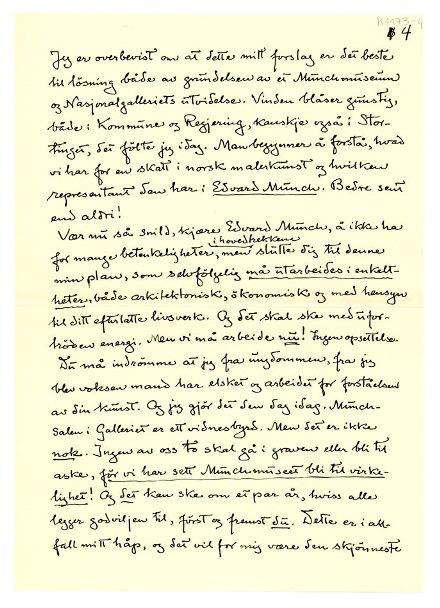 K1173-4
4
Jeg er overbevist om at dette mitt forslag er det beste
til lösning både av grundelsen av et Munchmuseum
og Nasjonalgalleriets utvidelse. Vinden blåser gunstig,
både i Kommune og Regjering, kanskje også i Stor-
tinget, det fölte jeg idag. Man begynner å forstå, hvad
vi har for en skatt i norsk malerkunst og hvilken
representant den har i Edvard Munch. Bedre sent
end aldri!
Vær nu så snild, kjære Edvard Munch, å ikke ha
i hovedtrekkene
for mange betenkeligheter, men slutte dig til denne
min plan, som selvfölgelig må utarbeides i enkelt-
heter, både arkitektonisk, ökonomisk og med hensyn
til ditt efterlatte livsverk. Og det skal ske med ufor-
tröden energi. Men vi må arbeide nu! Ingen opsettelse.
Du må indrömme at jeg fra ungdommen, fra jeg
blev voksen mand har elsket og arbeidet for forståelsen
av din kunst. Og jeg gjör det den dag idag. Munch-
salen i Galleriet er ett vidnesbyrd. Men det er ikke
nok. Ingen av oss to skal gå i graven eller bli til
aske, för vi har sett Munchmuseet bli til virke-
lighet! Og det kan ske om et par år, hvis alle
legger godviljen til, först og fremst du. Dette er i all-
fall mitt håp, og det vil for mig være den skjönneste